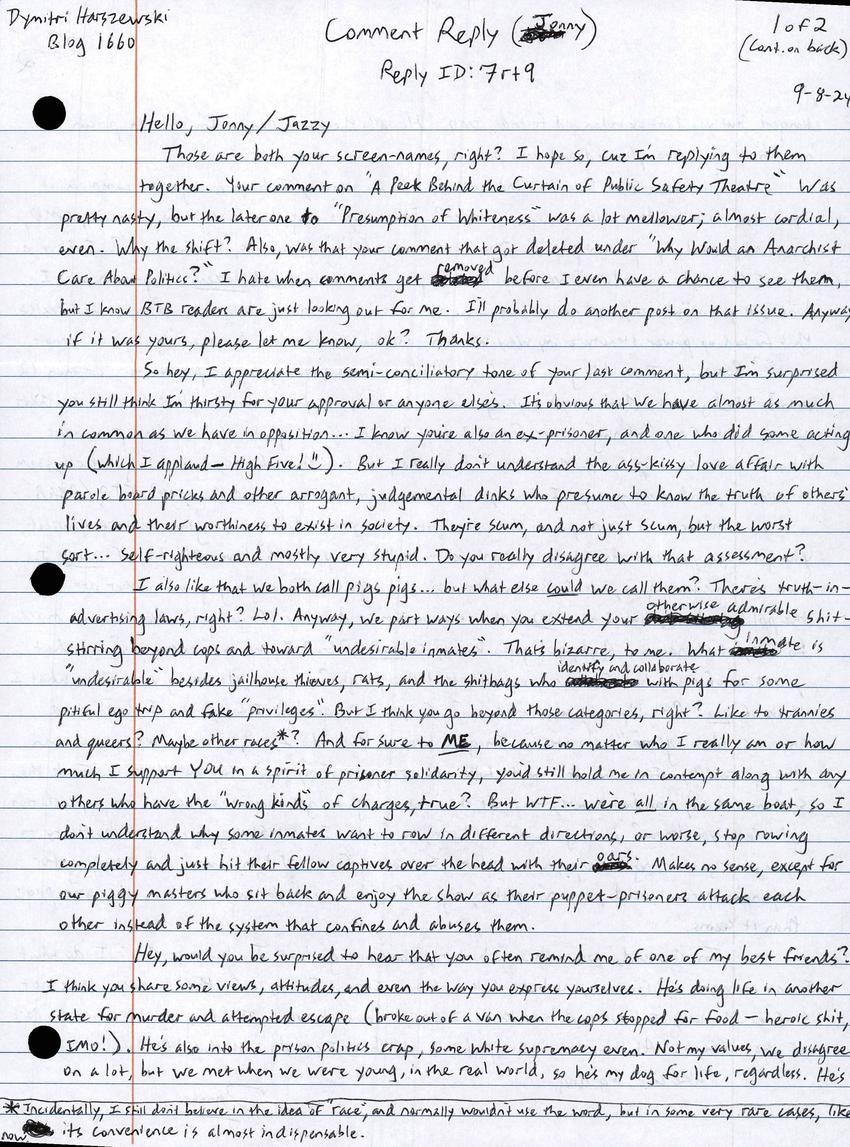 Dymitri Harszewski
Blog 1660
Comment Reply (Jonny)
Reply ID: 7rt9
1 of 2
(Cont. on back)
9-8-24
Hello, Jonny/Jazzy
Those are both your screen-names, right? I hope so, cuz I'm replying to them
together. Your comment on "A Peek Behind the Curtain of Public Safety Theatre" was
pretty nasty, but the later one to "Presumption of Whiteness" was a lot mellower; almost cordial,
even. Why the shift? Also, was that your comment that got deleted under "Why Would an Anarchist
Care About Politics?" I hate when comments get removed before I even have a chance to see them,
but I know BTB readers are just looking out for me. I'll probably do another post on that issue. Anyway
if it was yours, please let me know, ok? Thanks.
So hey, I appreciate the semi-conciliatory tone of your last comment, but I'm surprised
you still think I'm thirsty for your approval or anyone else's. It's obvious that we have almost as much
in common as we have in opposition... I know you're also an ex-prisoner, and one who did some acting
up (which I applaud — High Five! ☺). But I really don't understand the ass-kissy love affair with
parole board pricks and other arrogant, judgemental dinks who presume to know the truth of others'
lives and their worthiness to exist in society. They're scum, and not just scum, but the worst
sort... self-righteous and mostly very stupid. Do you really disagree with that assessment?
I also like that we both call pigs pigs... but what else could we call them? There's truth-in-
advertising laws, right? Lol. Anyway, we part ways when you extend your otherwise admirable shit-
stirring beyond cops and toward "undesirable inmates". That's bizarre, to me. What inmate is
"undesirable" besides jailhouse thieves, rats, and the shitbags who identify and collaborate with pigs for some
pitiful ego trip and fake "privileges". But I think you go beyond those categories, right? Like to trannies
and queers? Maybe other races*? And for sure to ME, because no matter who I really am or how
much I support YOU in a spirit of prisoner solidarity, you'd still hold me in contempt along with any
others who have the "wrong kinds" of charges, true? But WTF... we're all in the same boat, so I
don't understand why some inmates want to row in different directions, or worse, stop rowing
completely and just hit their fellow captives over the head with their oars. Makes no sense, except for
our piggy masters who sit back and enjoy the show as their puppet-prisoners attack each
other instead of the system that confines and abuses them.
Hey, would you be surprised to hear that you often remind me of one of my best friends?
I think you share some views, attitudes, and even the way you express yourselves. He's doing life in another
state for murder and attempted escape (broke out of a van when the cops stopped for food — heroic shit,
IMO!). He's also into the prison politics crap, some white supremacy even. Not my values, we disagree
on a lot, but we met when we were young, in the real world, so he's my dog for life, regardless. He's
* Incidentally, I still don't believe in the idea of "race", and normally wouldn't use the word, but in some very rare cases, like
now its convenience is almost indispensable.